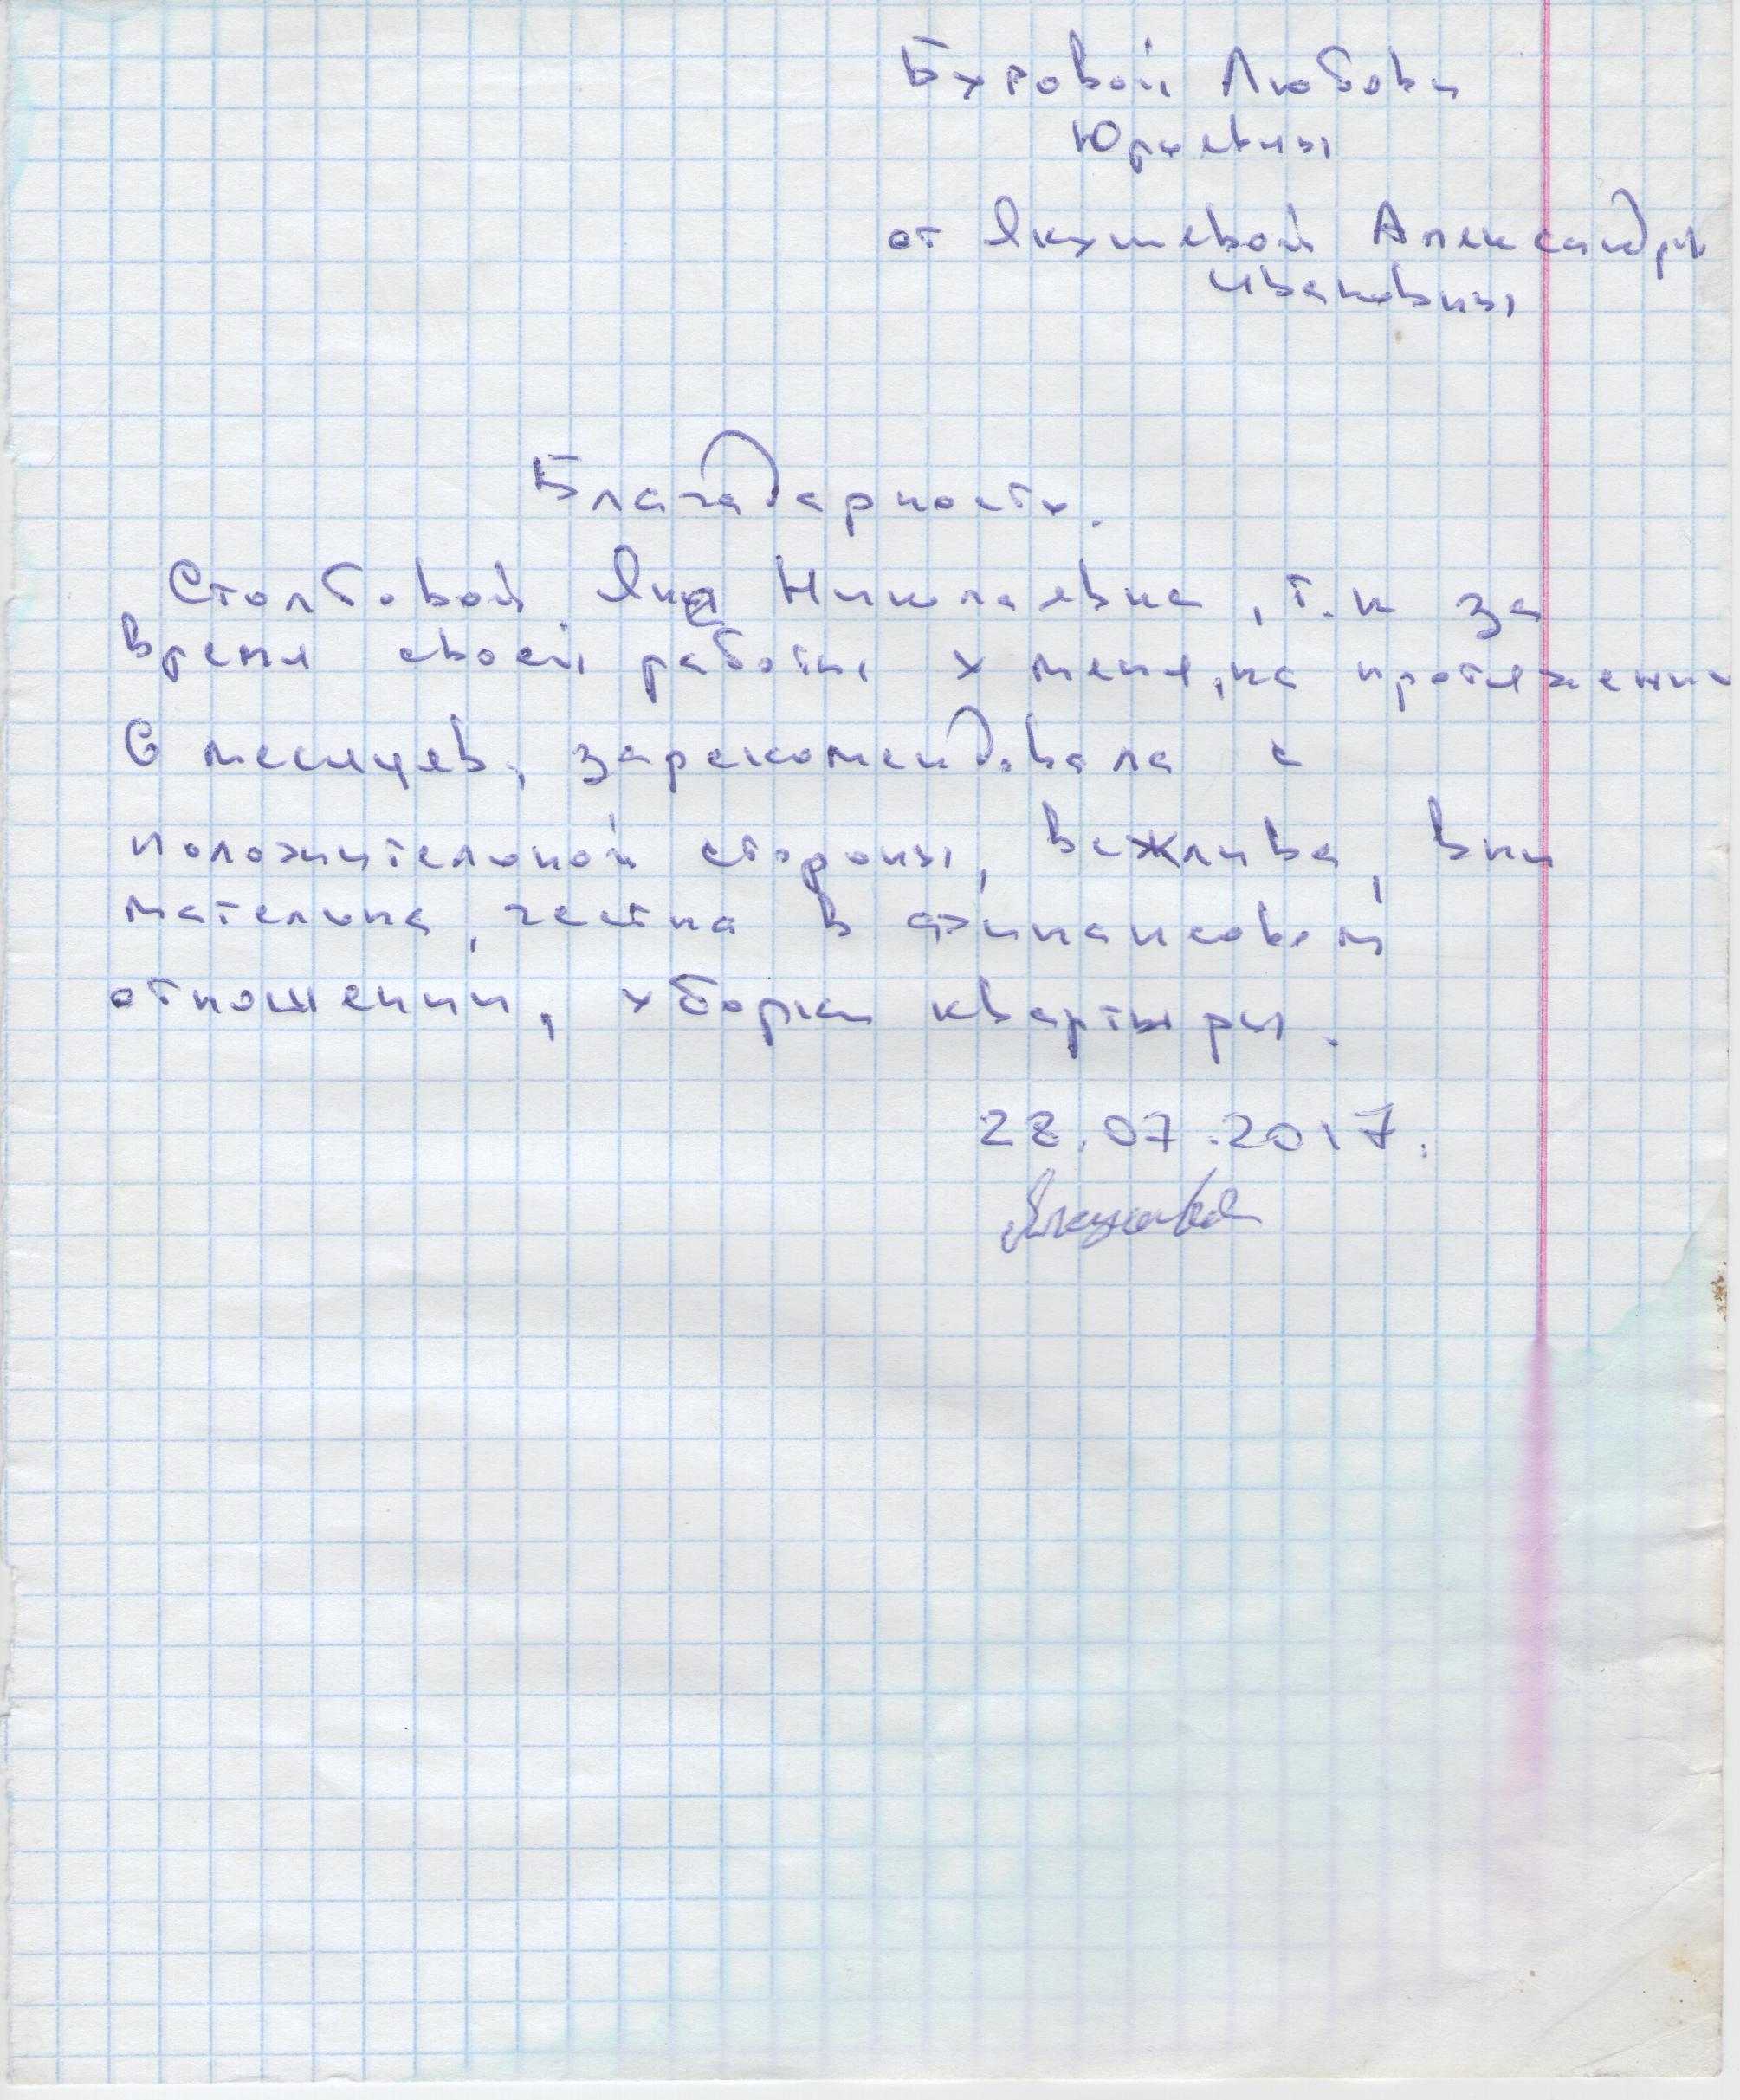 Буговой Любови
Юрьевны
от Якушевой Александры
Ивановны
Благадарность.
Столбовой Яна Николаевна, т.к за
время своей работы у меня, на протяжении
6 месяцев, зарекомендовала с
положительной стороны, вежлива, вни
мательна, честна в финансовом
отношении, уборки квартыры.
28.07.2017.
Якушева